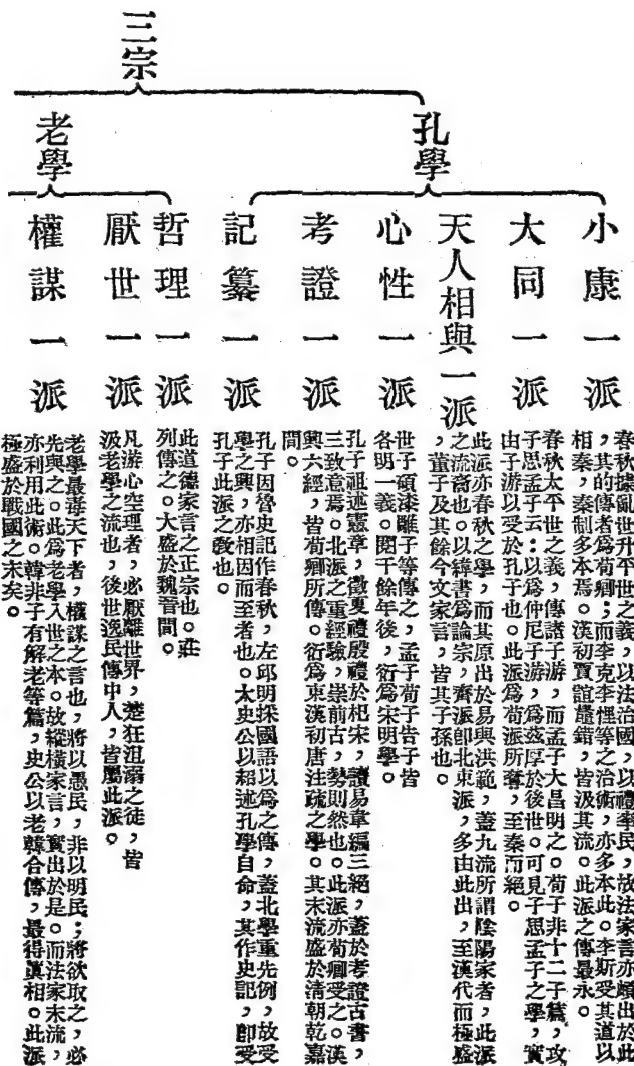 三宗
孔學
小康一派
春秋據亂世升平世之義，以法治國，以禮率民，故法家言亦頗出於此
，其的傳者爲荀卿；而李克李悝等之治術，亦多本此。李斯受其道以
相秦，秦制多本焉。漢初賈誼鼂錯，皆汲其流。此派之傳最永。
大同一派
春秋太平世之義，傳諸子游，而孟子大昌明之。荀子非十二子篇，攻
子思孟子云：以爲仲尼子游，爲茲厚於後世。可見子思孟子之學，實
由子游以受於孔子也。此派爲荀派所奪，至秦而絕。
天人相與一派
此派亦春秋之學，而其原出於易與洪範，蓋九流所謂陰陽家者，此派
之流裔也。以緯書爲論宗，齊派卽北東派，多由此出，至漢代而極盛
，董子及其餘今文家言，皆其子孫也。
心性一派
世子碩漆雕子等傳之，孟子荀子告子皆
各明一義。閱千餘年後，衍爲宋明學。
考證一派
孔子祖述憲章，徵夏禮殷禮於杞宋，讀易韋編三絕，蓋於考證古書，
三致意焉。北派之重經驗，崇前古，勢則然也。此派亦荀卿受之。漢
興六經，皆荀卿所傳。衍爲東漢初唐注疏之學。其末流盛於清朝乾嘉
間。
記纂一派
孔子因魯史記作春秋，左邱明採國語以爲之傳，蓋北學重先例，故受
學之興，亦相因而至者也。太史公以紹述孔學自命，其作史記，卽受
孔子此派之敎也。
老學
哲理一派
此道德家言之正宗也。莊
列傳之。大盛於魏晉間。
厭世一派
凡游心空理者，必厭離世界，楚狂沮溺之徒，皆
汲老學之流也，後世逸民傳中人，皆屬此派。
權謀一派
老學最毒天下者，權謀之言也，將以愚民，非以明民；將欲取之，必
先與之。此爲老學入世之本。故縱橫家言，實出於是。而法家末流，
亦利用此術。韓非子有解老等篇，史公以老韓合傳，最得眞相。此派
極盛於戰國之末矣。